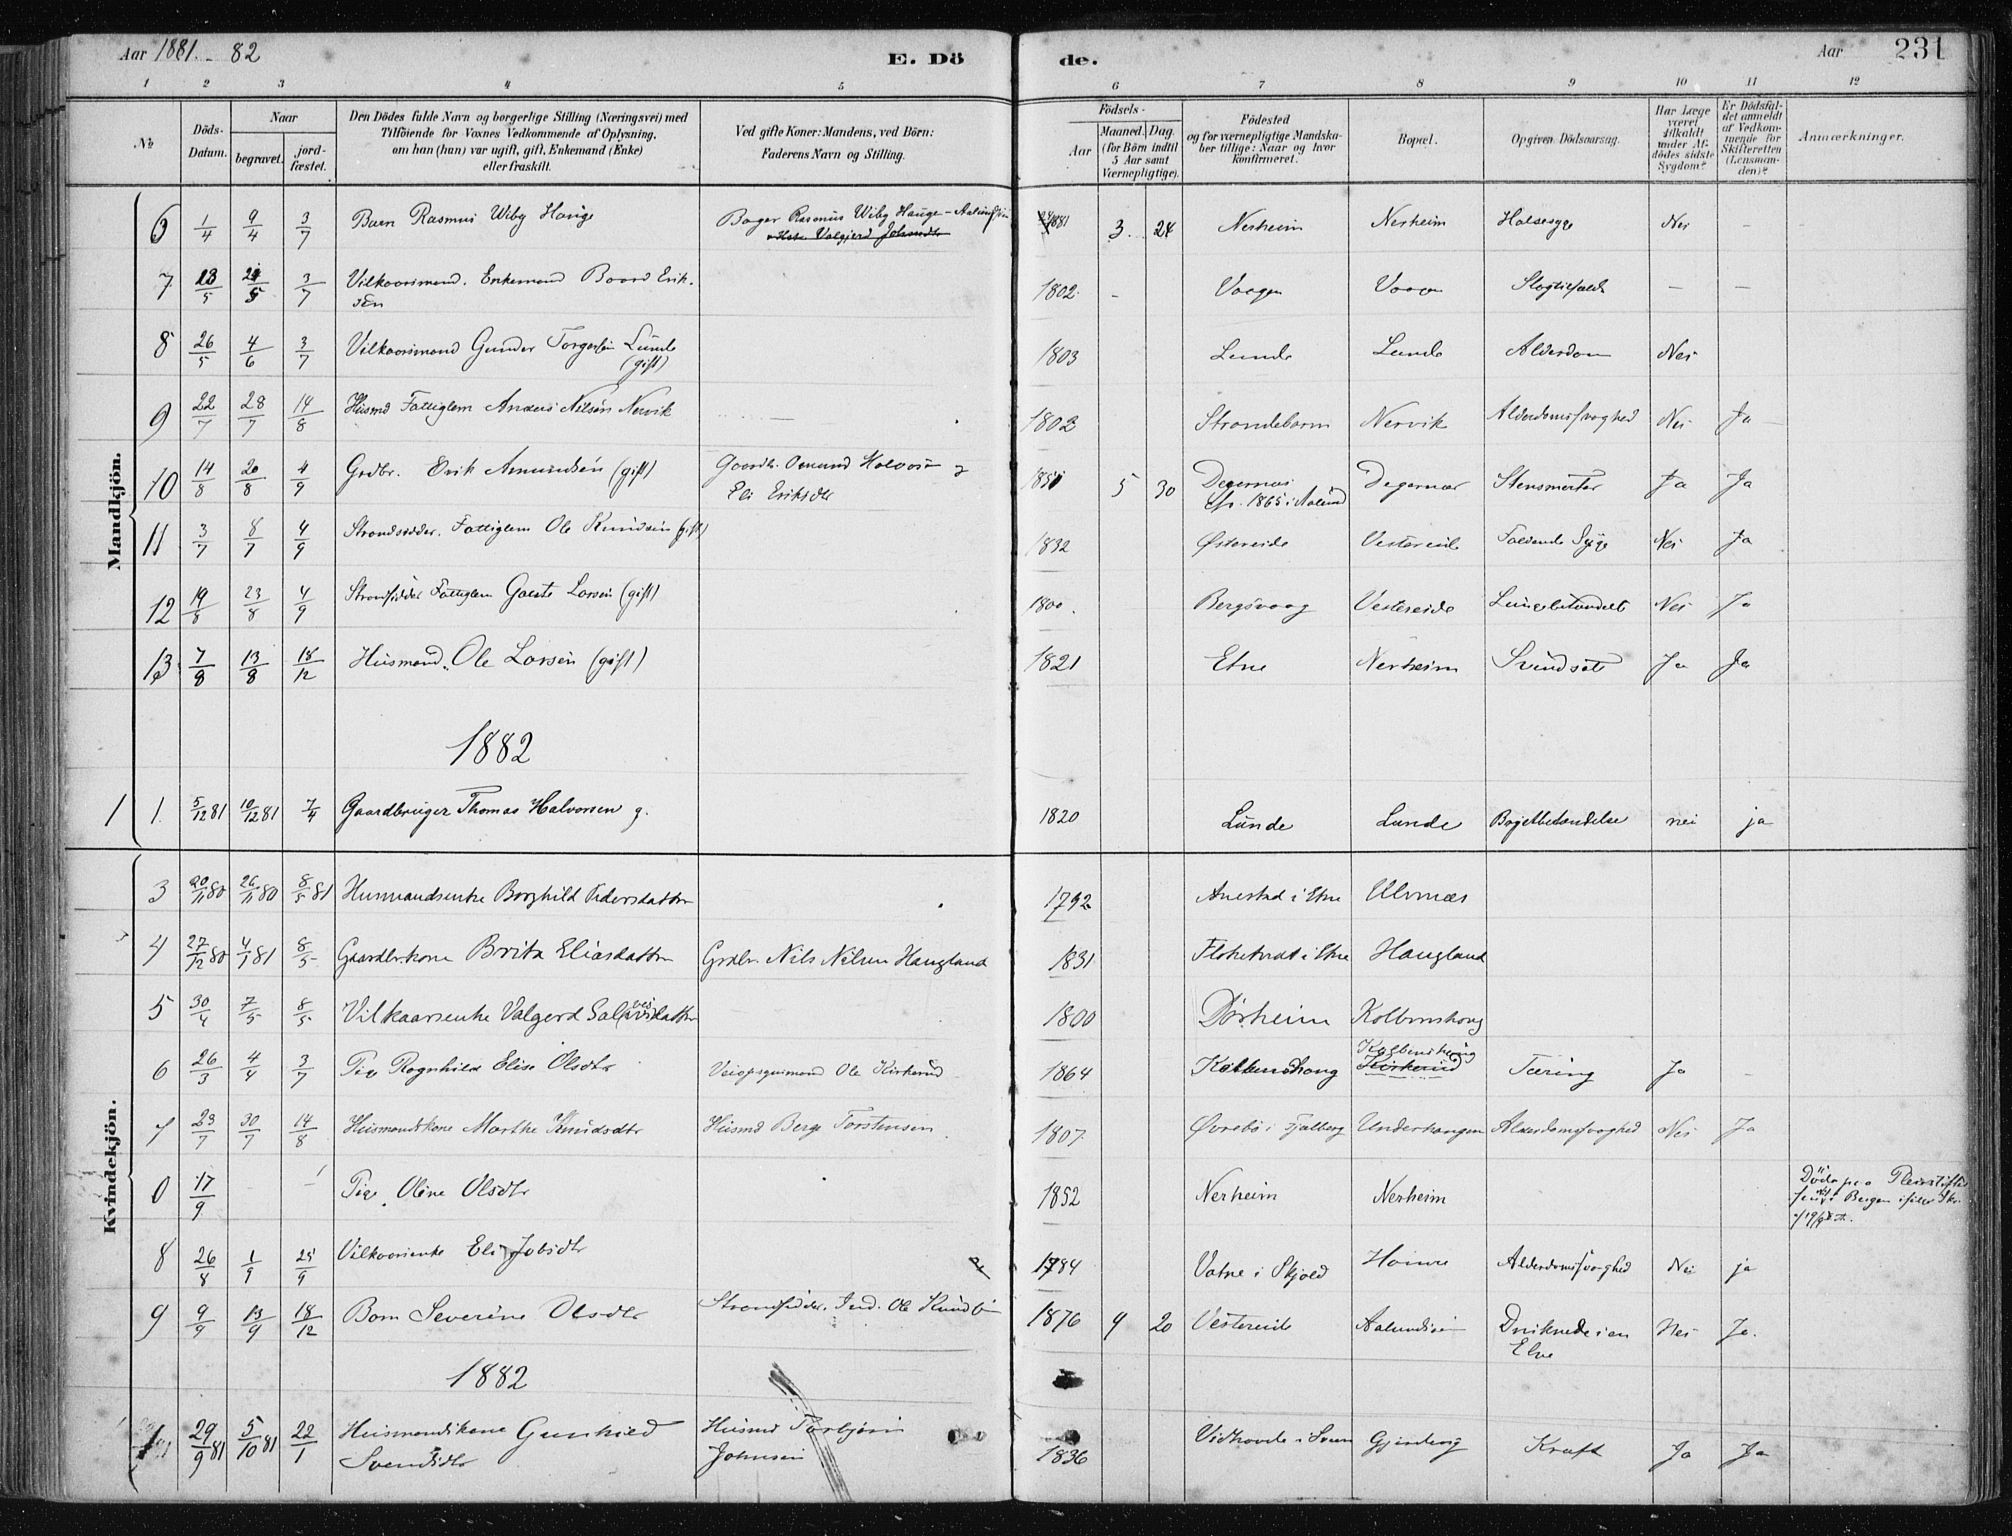 Aar 1881. - 82
E. Dö
de.
Aar
231
1 2 3 4 5 6 7 8 9 10 11 12
№
Döds-Datum.
Naar
begravet.
jord-fæstet.
Den Dödes fulde Navn og borgerlige Stilling (Næringsvei) med
Tilföiende for Voxnes Vedkommende af Oplysning,
om han (hun) var ugift, gift, Enkemand (Enke)
eller fraskilt.
Ved gifte Koner: Mandens, ved Börn:
Faderens Navn og Stilling.
Födsels-
Aar
Maaned. Dag.
(for Börn indtil
5 Aar samt
Værnepligtige).
Födested
og for værnepligtige Mandska-
ber tillige: Naar og hvor
konfirmeret.
Bopæl.
Opgiven Dödsaarsag.
Har Læge
været
tilkaldt
under Af-
dödes sidste
Sygdom?
Er Dödsfal-
det anmeldt
af Vedkom-
mende for
Skifteretten
(Lensman-
den)?
Anmærkninger.
Mandkjön.
6 1/4 9/4 3/7 Barn Rasmus Wiby Hauge Rasmus Wiby Hauge - 1881 3. 24 Nerheim Nerheim Halsesyge Nei -
7 18/5 3/7 Vilkaarsmand. Enkemand Baard Erik-
sen 1802. - Vaagen Vaagen - -
8 26/5 4/6 3/7 Vilkaarsmand Gunder Torgersen Lunde
(gift) 1803 Lunde Lunde Alderdom Nei
9 22/7 28/7 14/8 Husmd Fattiglem Anders Nilsen Nervik - 1802 Strandebarm Nervik Alderdomssvaghed Nei Ja
10 14/8 20/8 4/9 Grdbr. Erik Asmundsen (gift) Gaardbr. Osmund Halvors
Eli Eriksdtr 1851 5 30 Degernæs
1865 i Aalund Degernæs Ja Ja
11 3/7 8/7 4/9 Strandsidder. Fattiglem Ole Knudsen (gift) 1832 Østereide Vestereide Faldende Syge Nei Ja
12 19/8 23/8 4/9 Strandsidder Fattiglem Gaute Larsen (gift) 1800. Bergsvaag Vestereide Lungebetændelse Nei Ja
13 7/8 13/8 18/12 Husmand. Ole Larsen (gift) 1821 Etne Nerheim Svindsot Ja Ja
1882
1 1. 5/12 81 10/12 81 7/4 Gaardbruger Thomas Halvorsen g. 1820 Lunde Lunde nei ja
Kvindekjön.
3 20/11 80 26/11 80 8/5 81 Husmandsenke Borghild Pedersdatter 1792 Anestad i Etne Ulvenæs
4 27/12 80 4/1 81 8/5 Gaardbr.kone Brita Eliasdatter Grdbr. Nils Nilsen Haugland 1831 i Etne Haugland
5 30/4 7/5 8/5 Vilkaarsenke Valgerd Salvesdatter 1800 Dörheim Kolbenshaug
6 26/3 4/4 3/7 Pige Ragnhild Elise Olsdtr Ole Kirkerud 1864 Kolbenshaug Kolbenshaug
Kirkerud Tæring Ja -
7 23/7 30/7 14/8 Husmandskone Marthe Knudsdtr Husmd Berge Torstensen 1807. Øvrebö i Fjelberg Underhaugen Alderdomssvaghed Nei Ja
0 17/9 - Pige Oline Olsdtr 1852 Nerheim Nerheim Döde paa Pleiestiftel-
sen i Bergen
8 26/8 1/9 25/9 Vilkaarsenke Eli Jobsdtr 1784 Vatne i Skjold Alderdomssvaghed Nei ja
9 9/9 13/9 18/12 Barn Severine Olsdtr Strandsidder. Ind. Ole Knudsen 1876 9 20 Vestereide Druknede i en
Elve Nei Ja.
1882
1 29/9 81 5/10 81 22/1 Husmandskone Gunhild
Svendsdtr Husmd Torbjörn
Johnsen 1836 Kræft Ja Ja